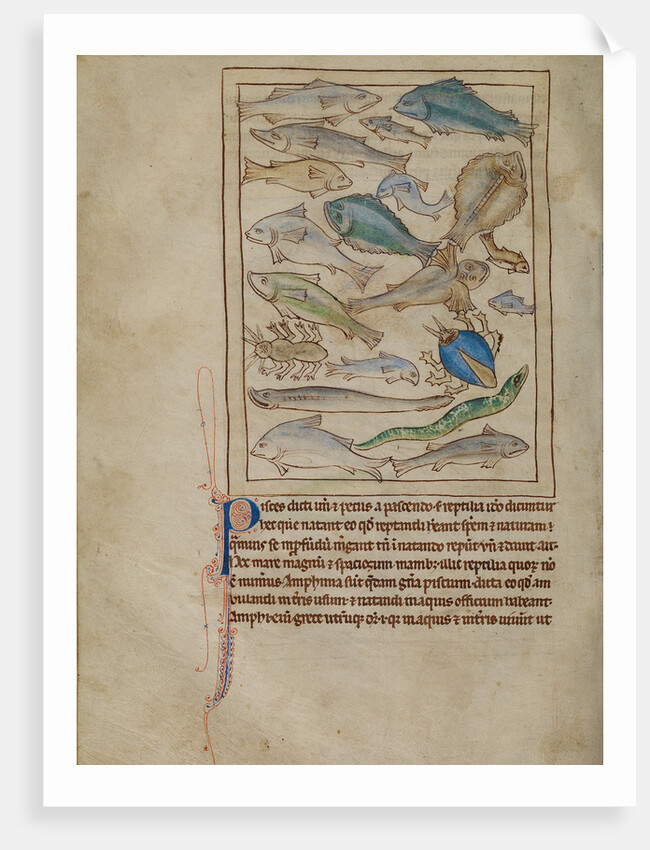 Pisces dicti un̄ & pecus a pascendo. & reptilia iđo dicuntur
hec que natant eo qđ reptandi h̄eant sp̄em & naturam &
q̄muis se in p̄fundū m̄gant tn̄ in natando reput un̄ & dauit ait.
Hoc mare magnū & spaciosum manib; illic reptilia quoꝝ nō
ē num̄us Amphiuia sūt q̄dam gn̄a piscium. dicta eo qđ am
bulandi in t̄ris usum. & natandi in aquis officium habeant.
Amphi. enim. grece utrūque ōr. i. qr in aquis & in t̄ris uiuunt ut